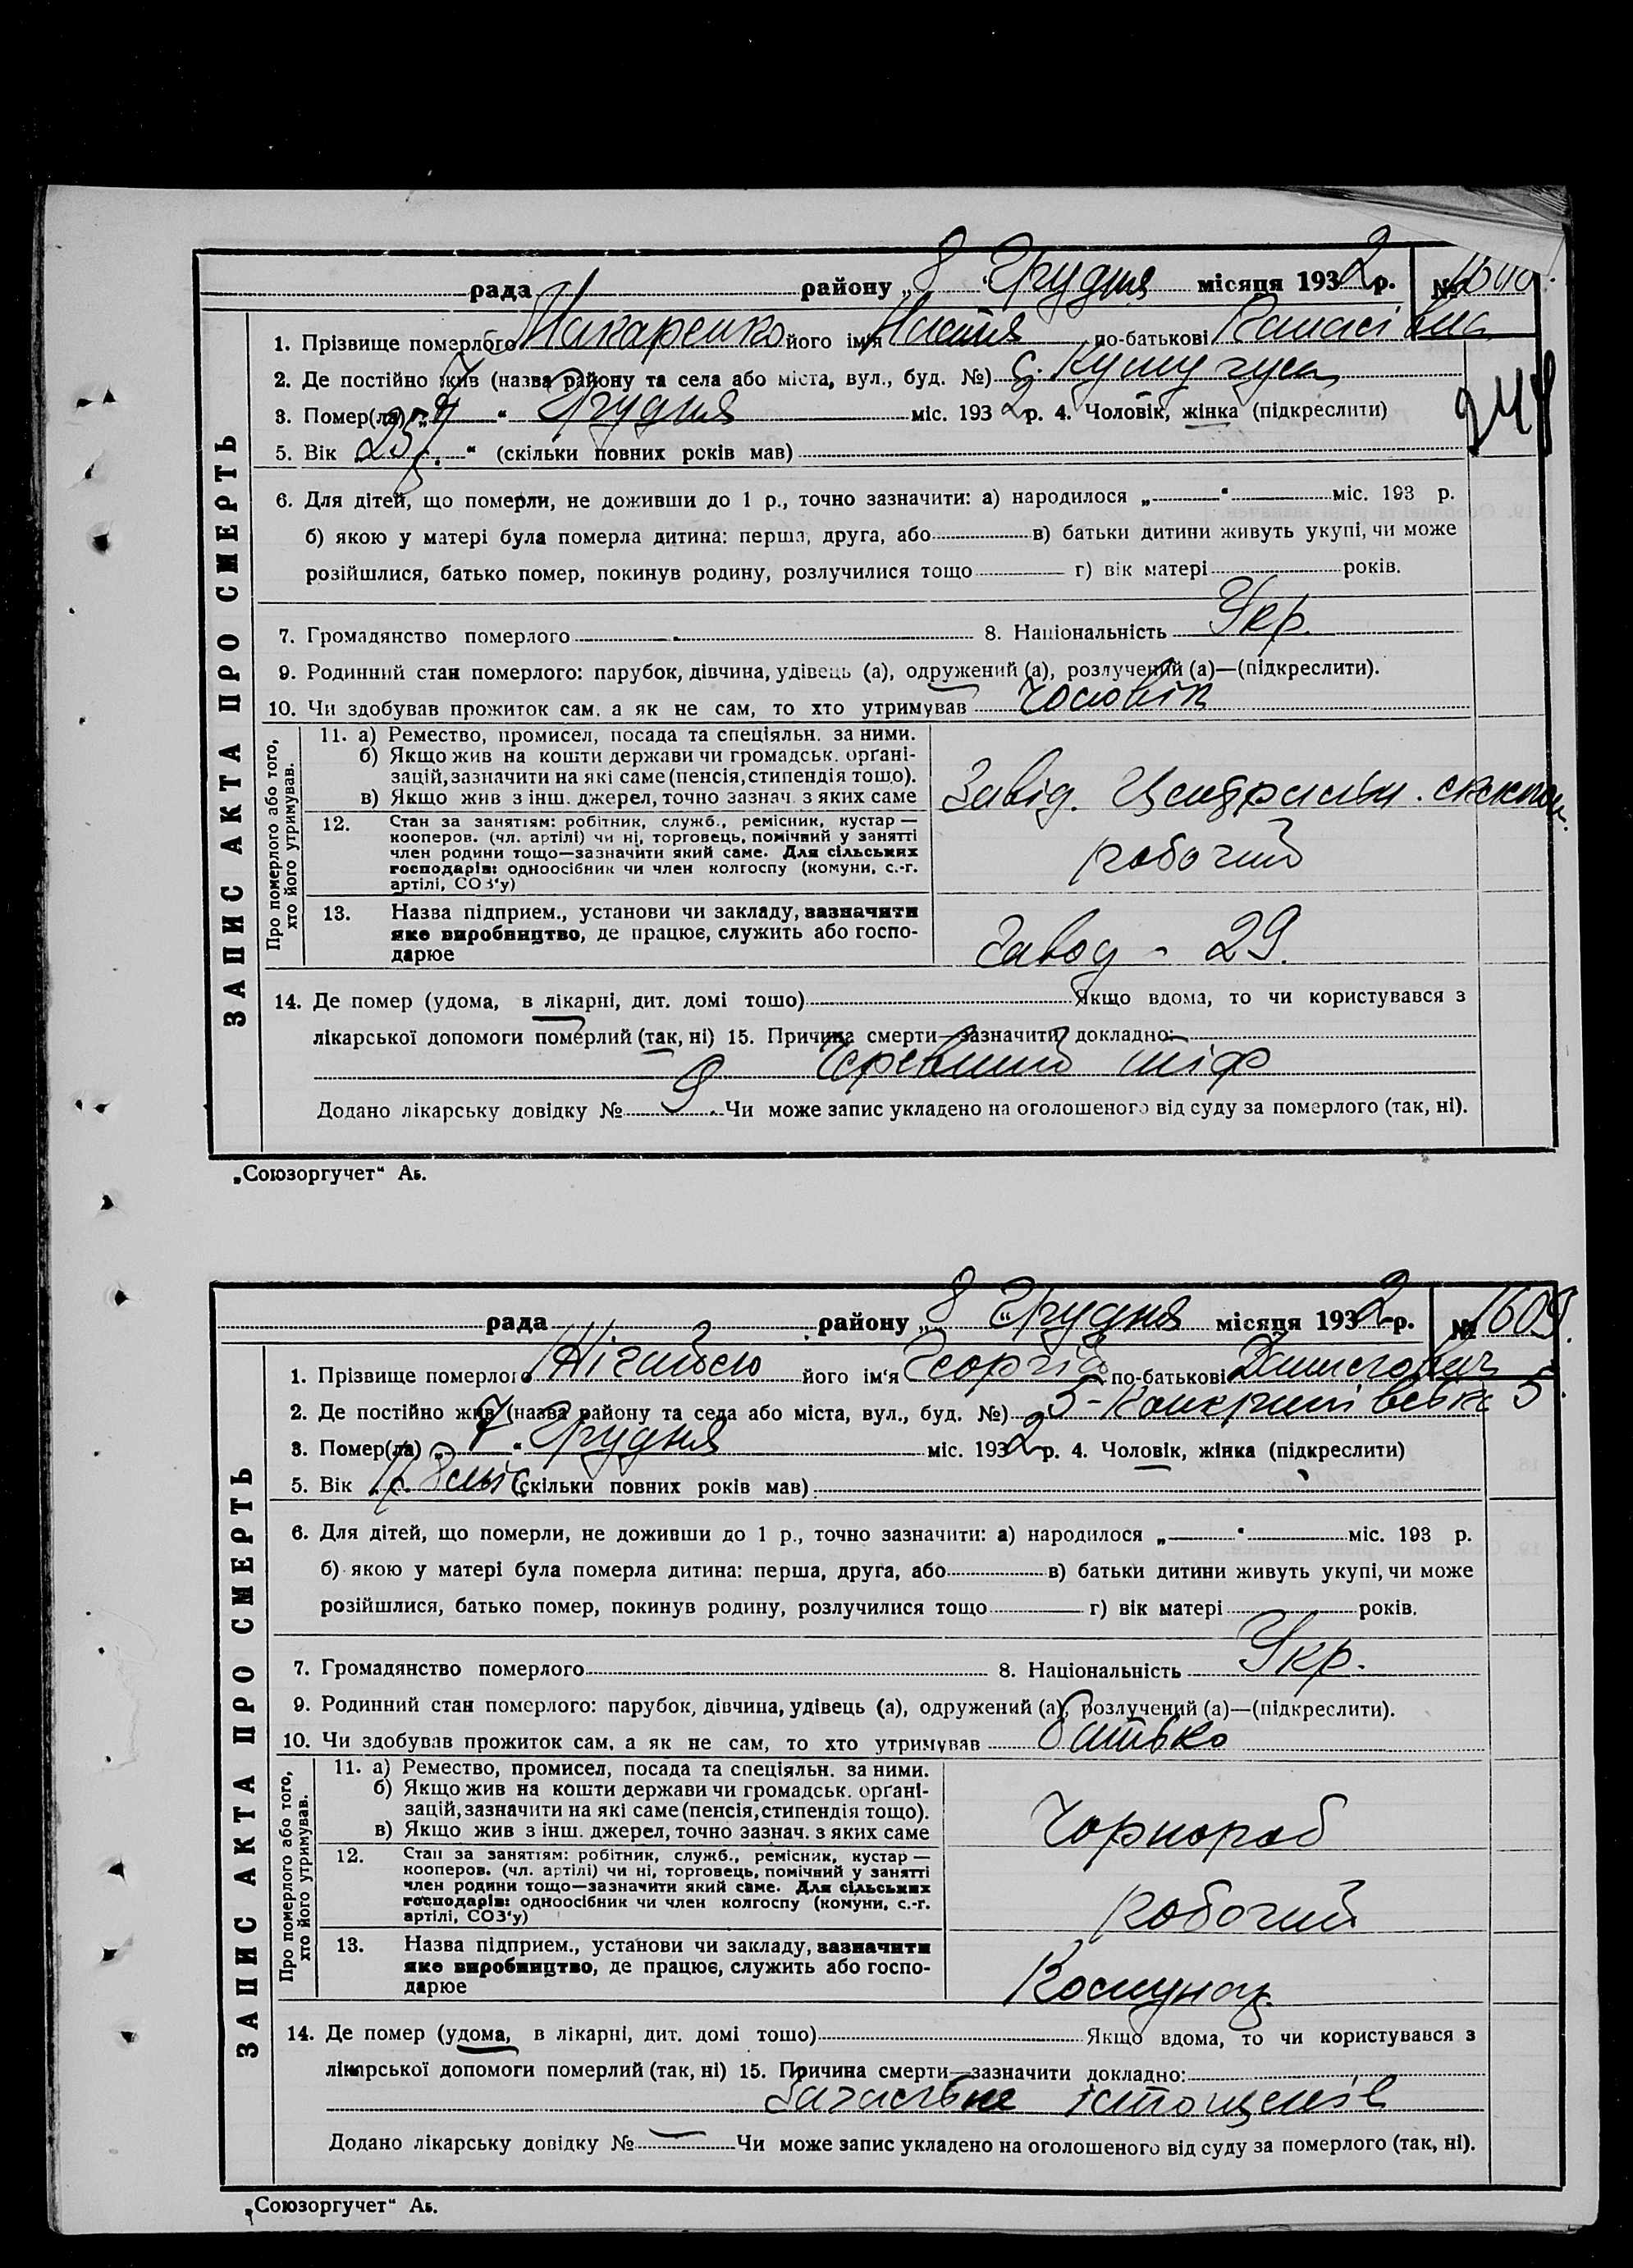 рада района „ 8 “ Грудня місяця 1932 р. №
1. Прізвище померлого Макаренко його ім'я Настя по-батькові
2. Де постійно жив (назва району та села або міста, вул., буд. №) с. Кушугум
3. Помер(ла) „ 7 “ Грудня міс. 1932 р. 4. Чоловік, жінка (підкреслити)
248
5. Вік „ 25 р. “ (скільки повних років мав)
6. Для дітей, що померли, не доживши до 1 р., точно зазначити: а) народилося „ “ міс. 193 р.
б) якою у матері була померла дитина: перша, друга, або в) батьки дитини живуть укупі, чи може
розійшлися, батько помер, покинув родину, розлучилися тощо г) вік матері років.
7. Громадянство померлого 8. Національність Укр.
9. Родинний стан померлого: парубок, дівчина, удівець (а), одружений (а), розлучений (а)—(підкреслити).
10. Чи здобував прожиток сам, а як не сам, то хто утримував Чоловік
ЗАПИС АКТА ПРО СМЕРТЬ
Про померлого або того, хто його утримував.
11. а) Ремество, промисел, посада та спеціяльн. за ними.
б) Якщо жив на кошти держави чи громадськ. орґані-
зацій, зазначити на які саме (пенсія, стипендія тощо).
в) Якщо жив з інш. джерел, точно зазнач. з яких саме
Завід.
12. Стан за заняттям: робітник, служб., ремісник, кустар —
кооперов. (чл. артілі) чи ні, торговець, помічний у занятті
член родини тощо—зазначити який саме. Для сільських
господарів: одноосібник чи член колгоспу (комуни, с.-г.
артілі, СОЗ'у)
робочий
13. Назва підприєм., установи чи закладу, зазначити
яке виробництво, де працює, служить або госпо-
дарює
Завод - 29.
14. Де помер (удома, в лікарні, дит. домі тощо) Якщо вдома, то чи користувався з
лікарської допомоги померлий (так, ні) 15. Причина смерти—зазначити докладно:
Черевний тіф
Додано лікарську довідку № 9 Чи може запис укладено на оголошеного від суду за померлого (так, ні).
„Союзоргучет“ Аь.
рада району „ 8 “ Грудня місяця 1932 р. № 1609.
1. Прізвище померлого його ім'я Георгій по-батькові
2. Де постійно жив (назва району та села або міста, вул., буд. №) 5
3. Помер(ла) „ 7 “ Грудня міс. 1932 р. 4. Чоловік, жінка (підкреслити)
5. Вік 1 р. 8 міс (скільки повних років мав)
6. Для дітей, що померли, не доживши до 1 р., точно зазначити: а) народилося „ “ міс. 193 р.
б) якою у матері була померла дитина: перша, друга, або в) батьки дитини живуть укупі, чи може
розійшлися, батько помер, покинув родину, розлучилися тощо г) вік матері років.
7. Громадянство померлого 8. Національність Укр.
9. Родинний стан померлого: парубок, дівчина, удівець (а), одружений (а), розлучений (а)—(підкреслити).
10. Чи здобував прожиток сам, а як не сам, то хто утримував батько
ЗАПИС АКТА ПРО СМЕРТЬ
Про померлого або того, хто його утримував.
11. а) Ремество, промисел, посада та спеціяльн. за ними.
б) Якщо жив на кошти держави чи громадськ. орґані-
зацій, зазначити на які саме (пенсія, стипендія тощо).
в) Якщо жив з інш. джерел, точно зазнач. з яких саме
Чорнороб
12. Стан за заняттям: робітник, служб., ремісник, кустар —
кооперов. (чл. артілі) чи ні, торговець, помічний у занятті
член родини тощо—зазначити який саме. Для сільських
господарів: одноосібник чи член колгоспу (комуни, с.-г.
артілі, СОЗ'у)
робочий
13. Назва підприєм., установи чи закладу, зазначити
яке виробництво, де працює, служить або госпо-
дарює
Комунар
14. Де помер (удома, в лікарні, дит. домі тощо) Якщо вдома, то чи користувався з
лікарської допомоги померлий (так, ні) 15. Причина смерти—зазначити докладно:
Загальне істощеніє
Додано лікарську довідку № — Чи може запис укладено на оголошеного від суду за померлого (так, ні).
„Союзоргучет“ Аь.